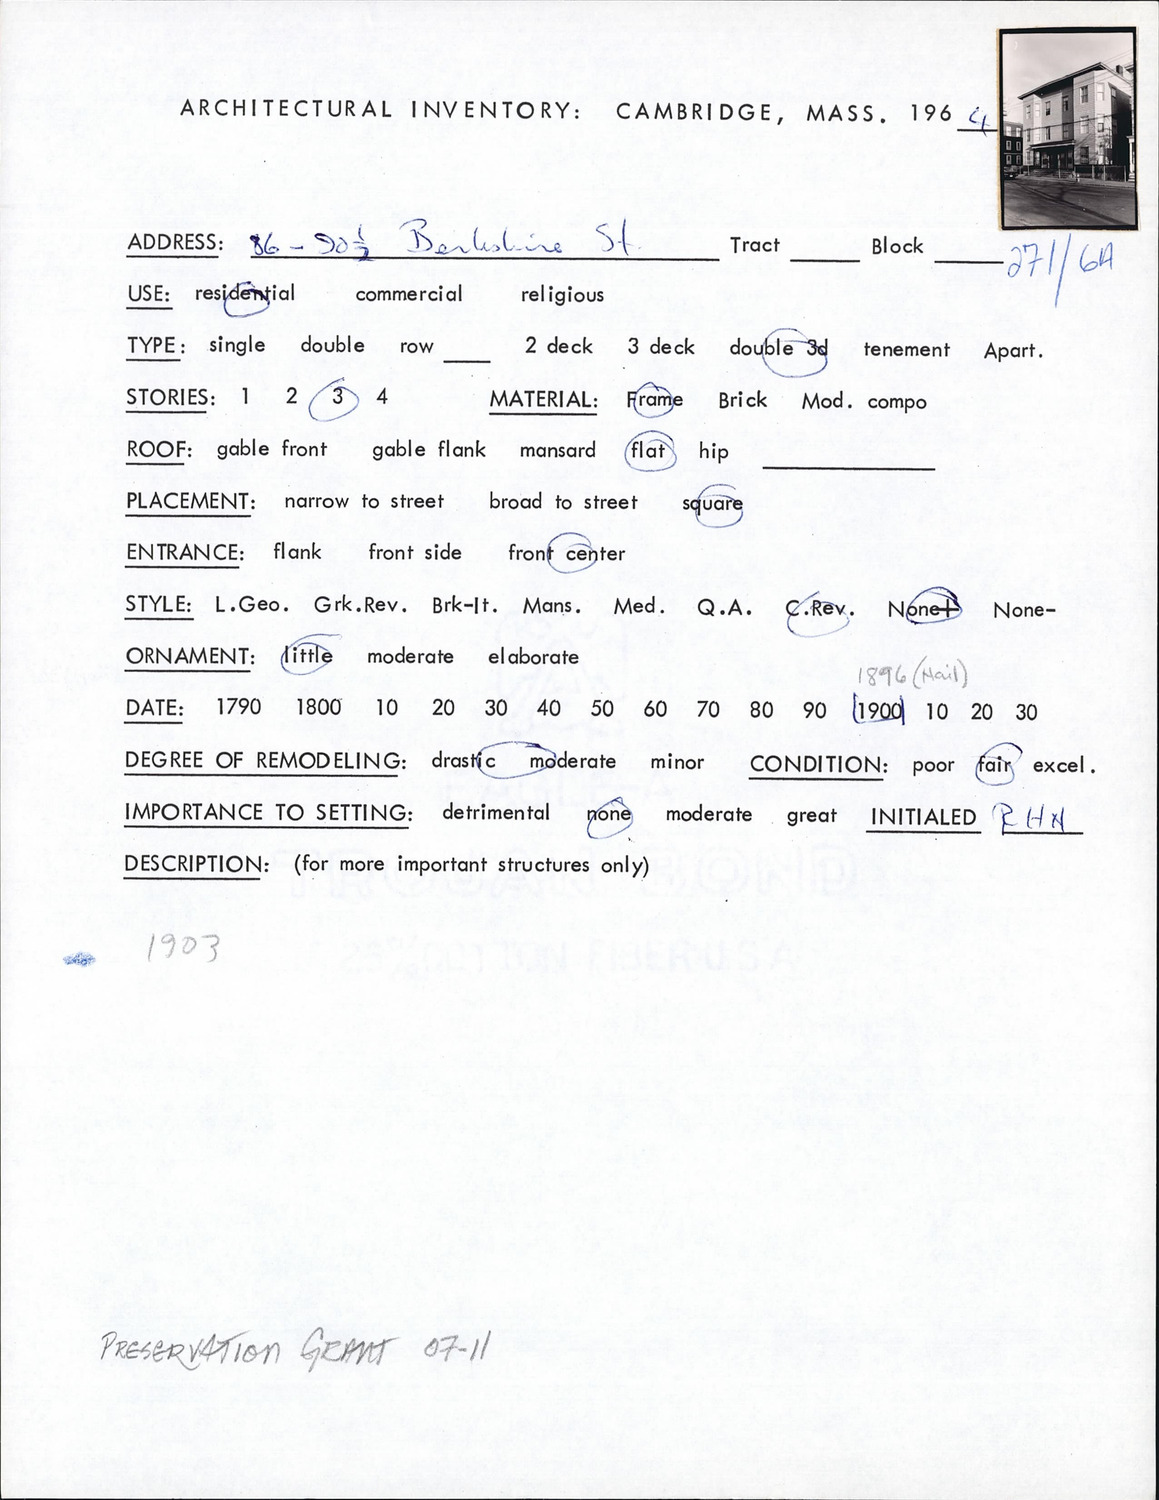 ARCHITECTURAL INVENTORY: CAMBRIDGE, MASS. 196 4
ADDRESS: 86 - 90½ Berkshire St. Tract ____ Block ____ 271/6A
USE: residential commercial religious
TYPE: single double row ____ 2 deck 3 deck double 3d tenement Apart.
STORIES: 1 2 3 4 MATERIAL: Frame Brick Mod. compo
ROOF: gable front gable flank mansard flat hip ____
PLACEMENT: narrow to street broad to street square
ENTRANCE: flank front side front center
STYLE: L.Geo. Grk.Rev. Brk-It. Mans. Med. Q.A. C.Rev. None+ None-
ORNAMENT: little moderate elaborate
1896 (Nail)
DATE: 1790 1800 10 20 30 40 50 60 70 80 90 1900 10 20 30
DEGREE OF REMODELING: drastic moderate minor CONDITION: poor fair excel.
IMPORTANCE TO SETTING: detrimental none moderate great INITIALED RHN
DESCRIPTION: (for more important structures only)
1903
PRESERVATION GRANT 07-11